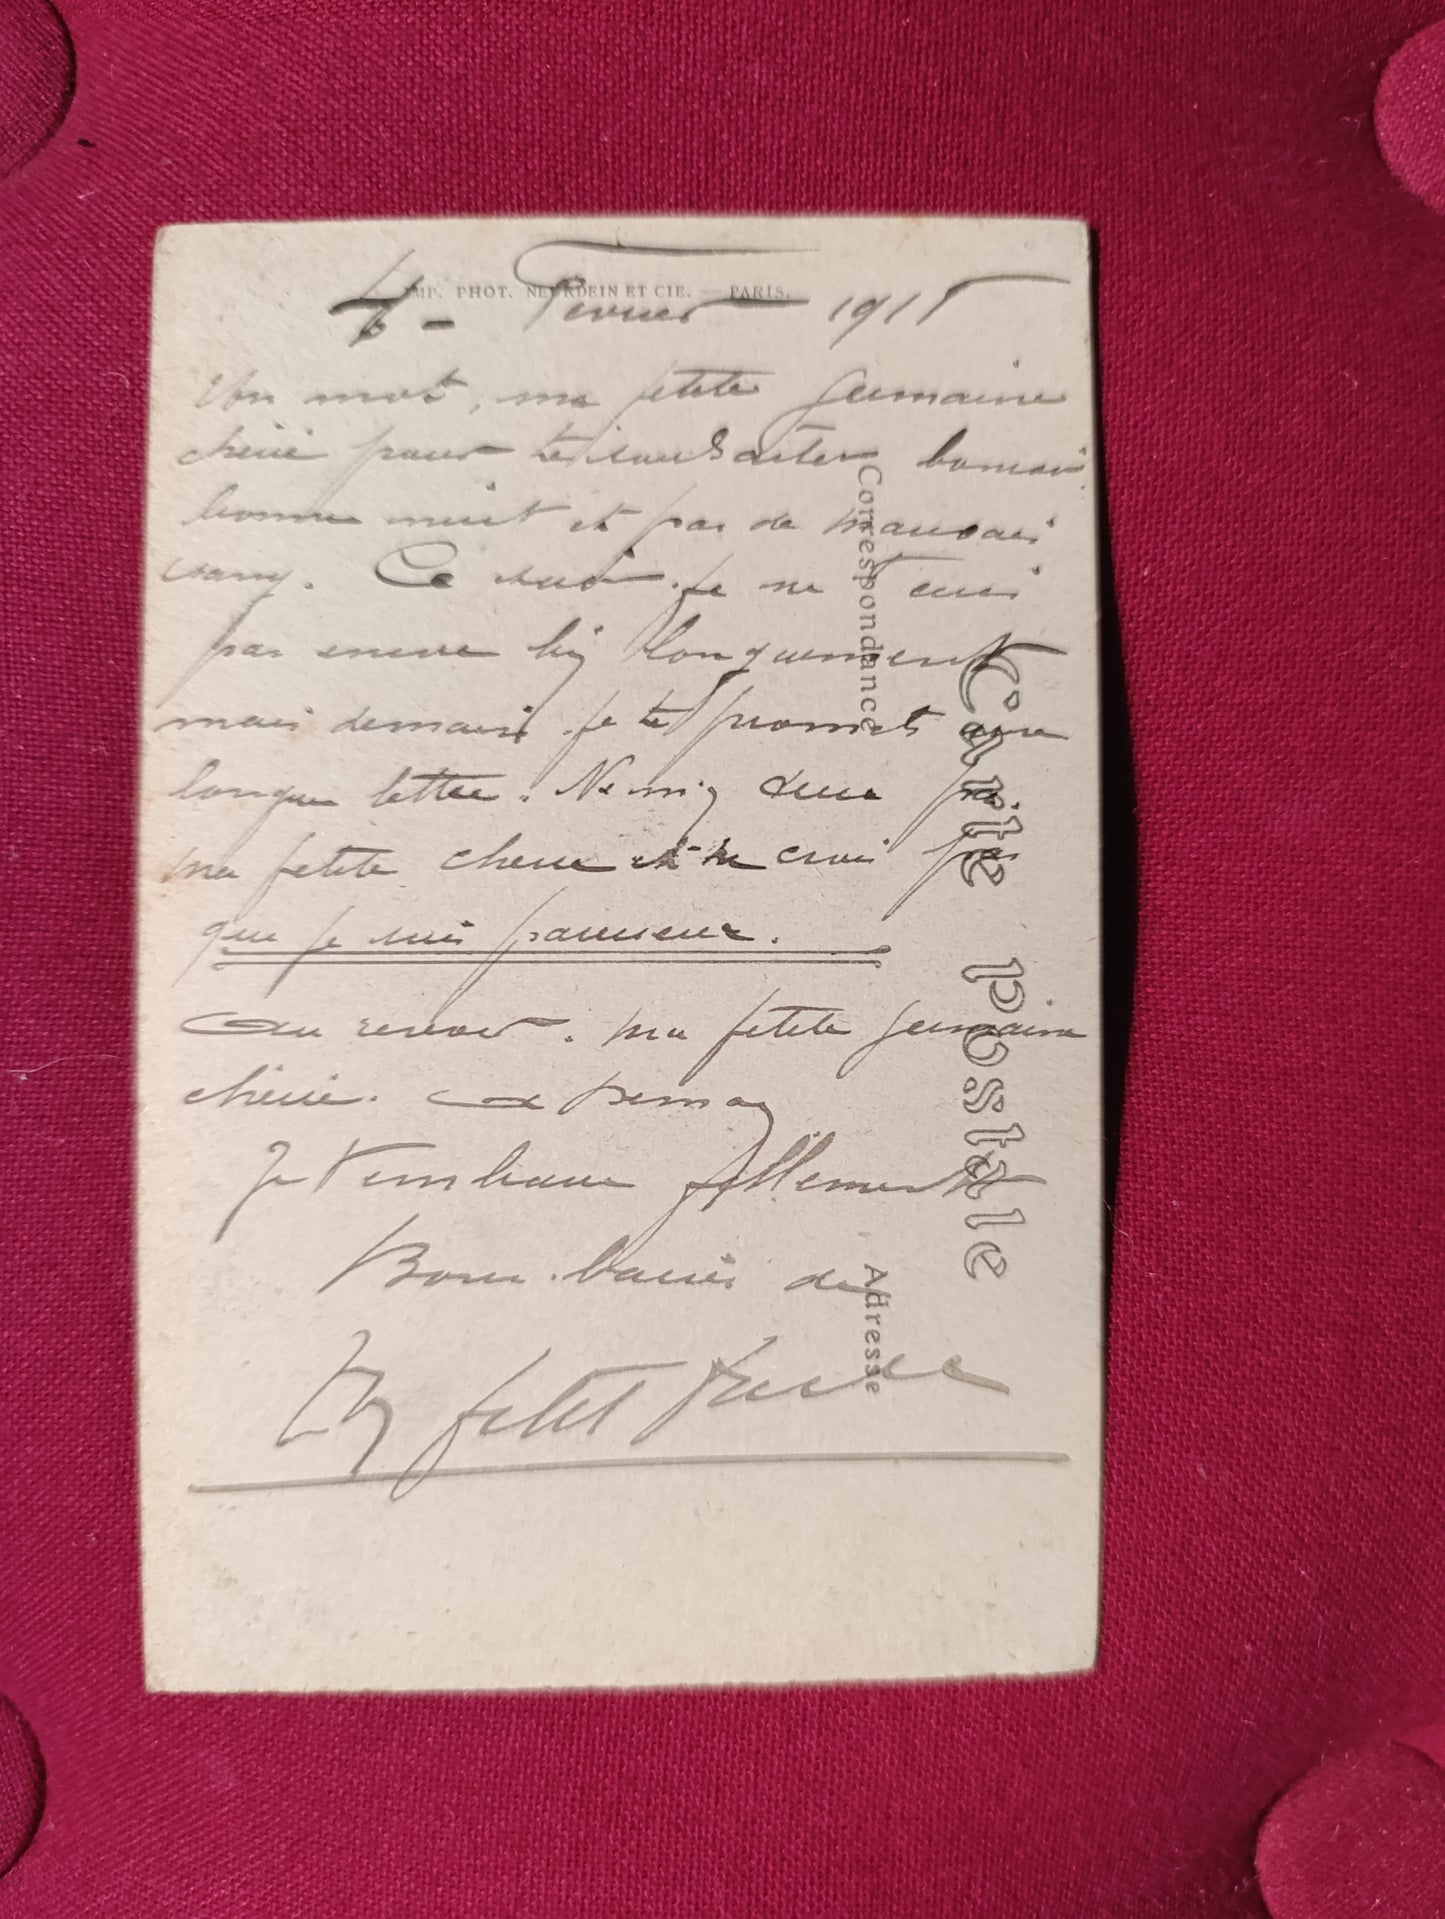 IMP. PHOT. NEURDEIN ET CIE. — PARIS.
4 - Fevrier 1915
Un mot, ma petite Germaine
chérie pour te souhaiter bonsoir
bonne nuit et pas de mauvais
sang. Ce soir je ne t'ecris
pas encore bien longuement
mais demain je te promets une
longue lettre. Ne m'en veux pas
ma petite cherie et ne crois pas
que je suis paresseux.
Au revoir. ma petite Germaine
chérie. A demain
Je t'embrasse follement
Bons baisers de
Ton petit
Correspondance
Carte postale
Adresse